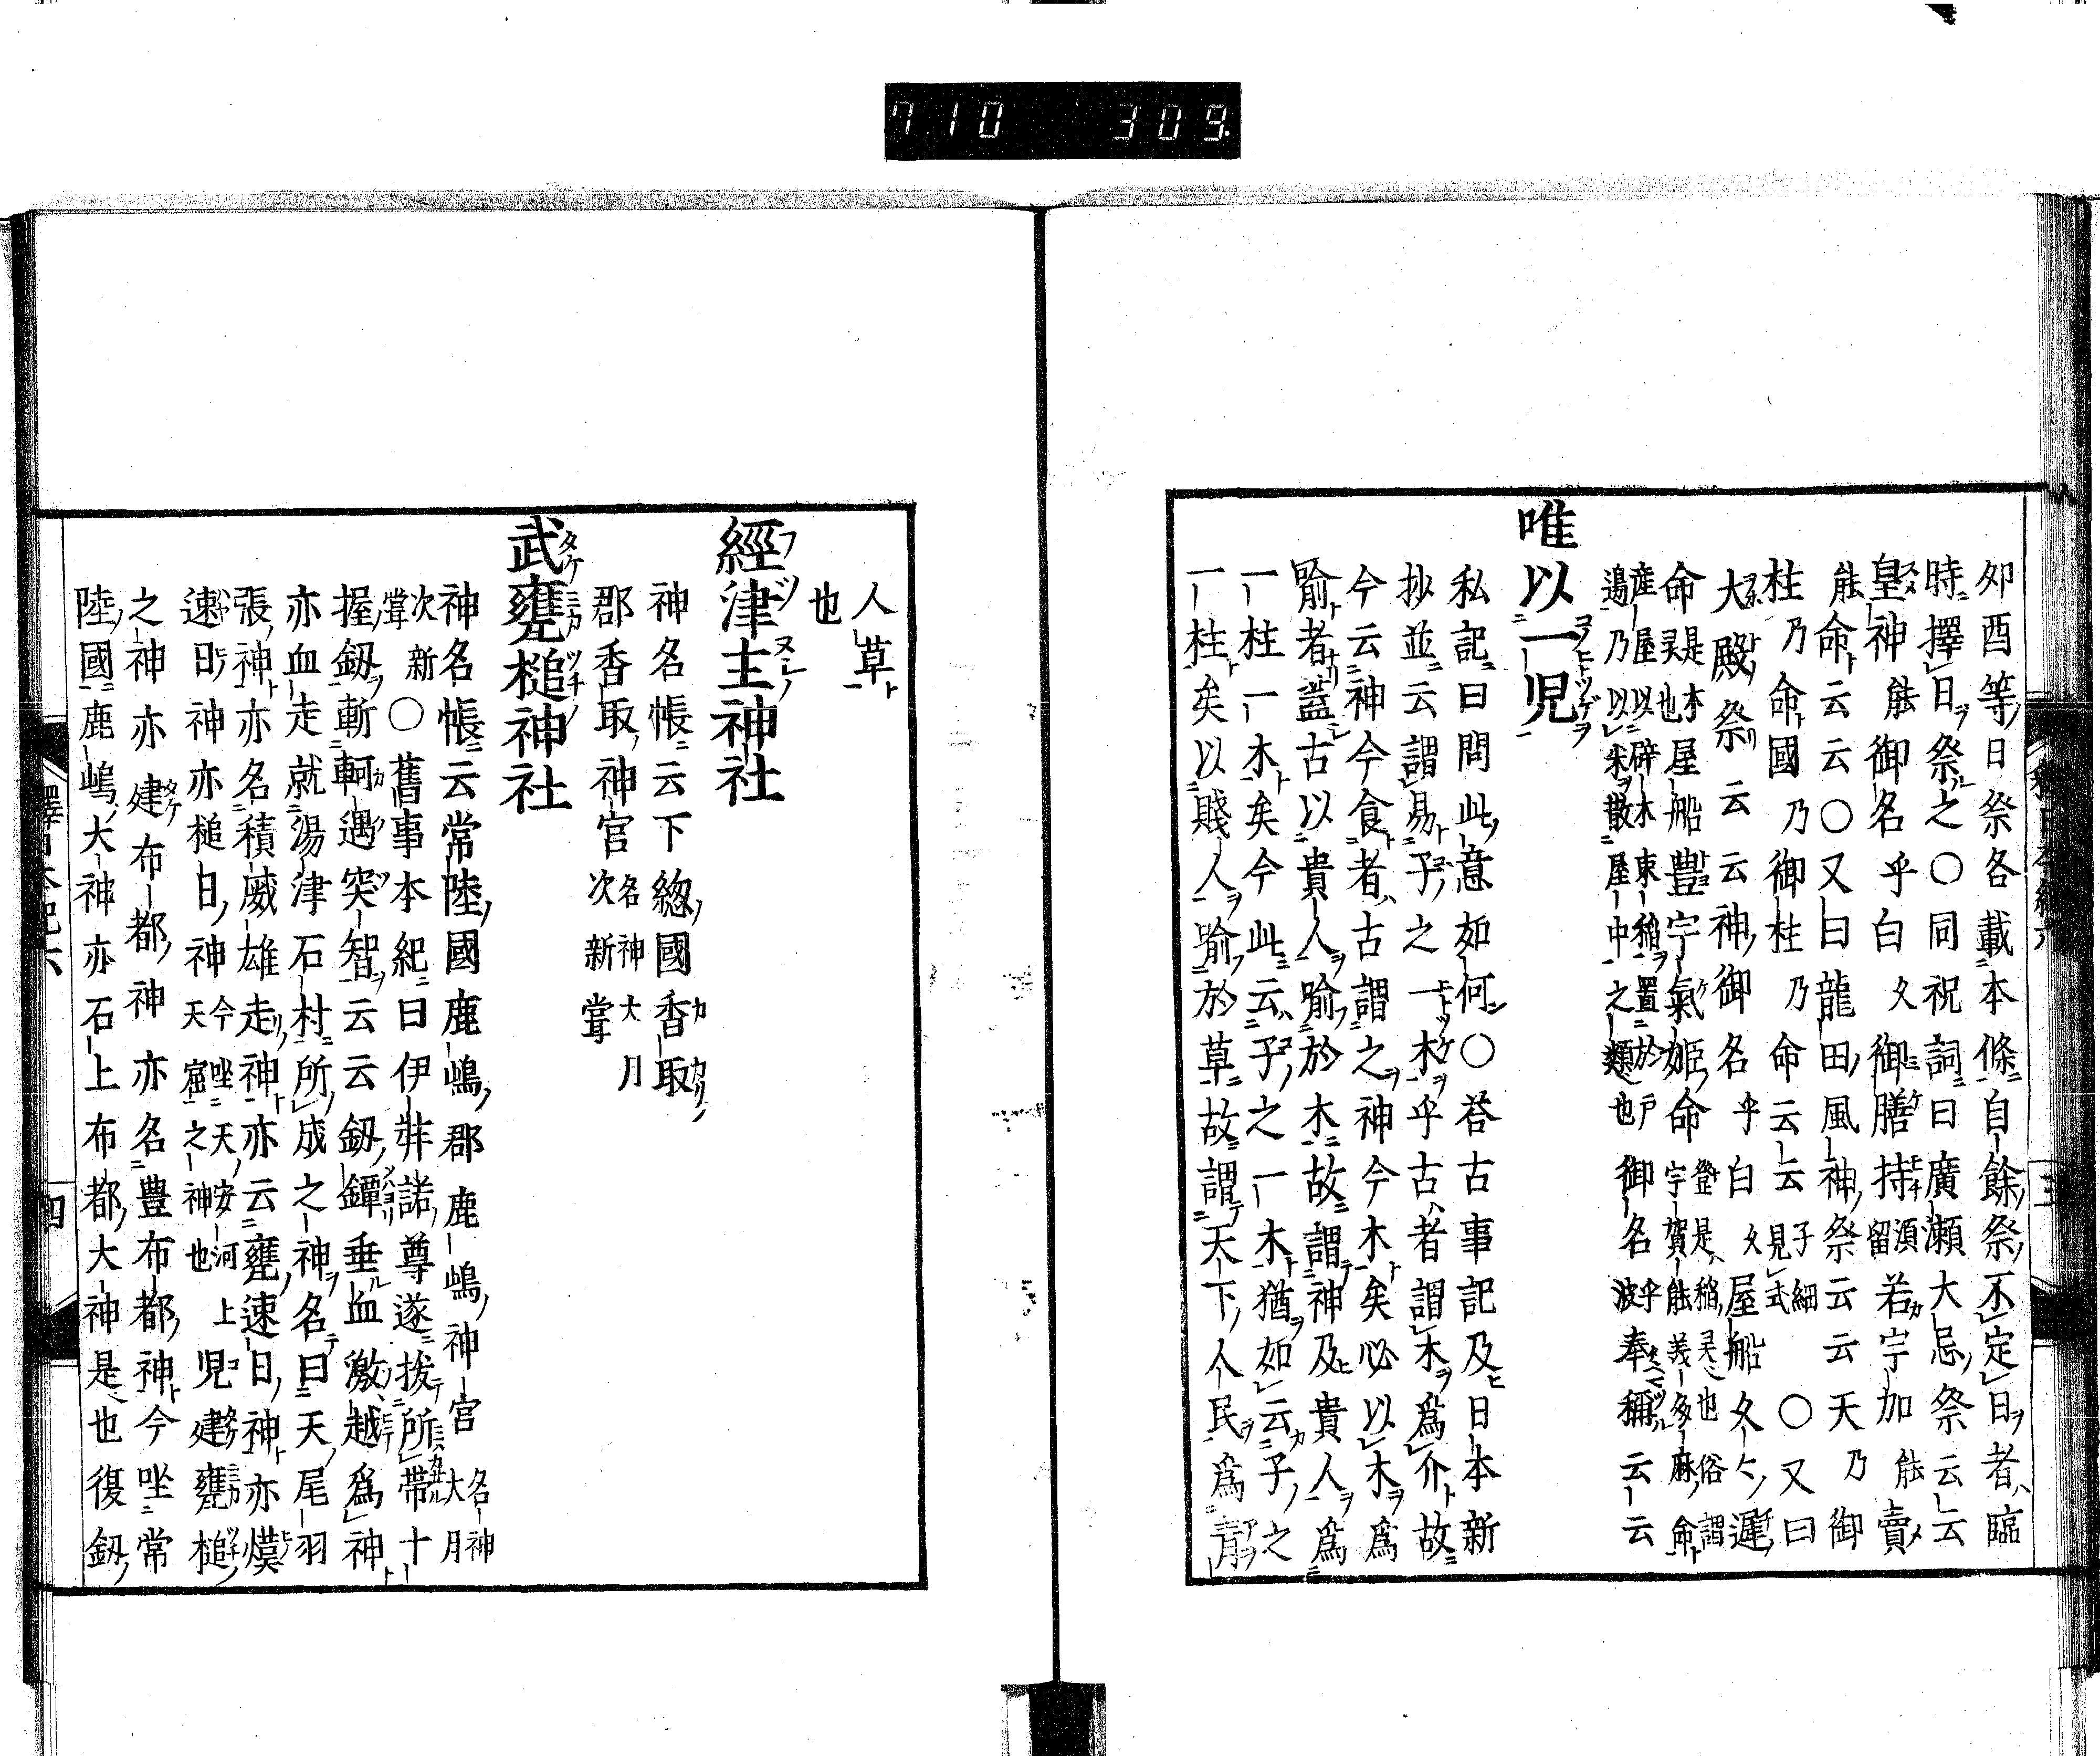 710 309
夘酉等日祭各載本條自餘祭不定日者臨
時擇日祭之〇同祝詞曰廣瀬大忌祭云云
皇神能御名乎白久御膳持須留若宇加能賣
能命云云〇又曰龍田風神祭云云天乃御
柱乃命國乃御柱乃命云云見子細式〇又曰
大殿祭云云神御名乎白久屋船久久遲
命是木霊也屋船豊宇氣姫命登是稲霊也俗謂宇賀能義多麻命
産屋以辟木束稲置於戸邊乃以米散屋中之類也御名乎波奉稱云云
唯以一児
私記曰問此意如何〇荅古事記及日本新
抄並云謂易子之一木乎古者謂木爲介故
今云神今食者古謂之神今木矣必以木爲
喻者蓋古以貴人喻於木故謂神及貴人爲
一柱一木矣今此云子之一木猶如云子之
一柱矣以賤人喻於草故謂天下人民爲青
人草
也
經津主神社
神名帳云下總國香取
郡香取神宮名神大月次新甞
武甕槌神社
神名帳云常陸國鹿嶋郡鹿嶋神宮名神大月
次新甞〇舊事本紀曰伊弉諾尊遂拔所帶十
握釼斬軻遇突智云云釼鐔垂血激越爲神
亦血走就湯津石村所成之神名曰天尾羽
張神亦名積威雄走神亦云甕速日神亦熯
速日神亦槌日神今坐天安河上天窟之神也児建甕槌
之神亦建布都神亦名豊布都神今坐常
陸國鹿嶋大神亦石上布都大神是也復釼
釋日本紀六
四